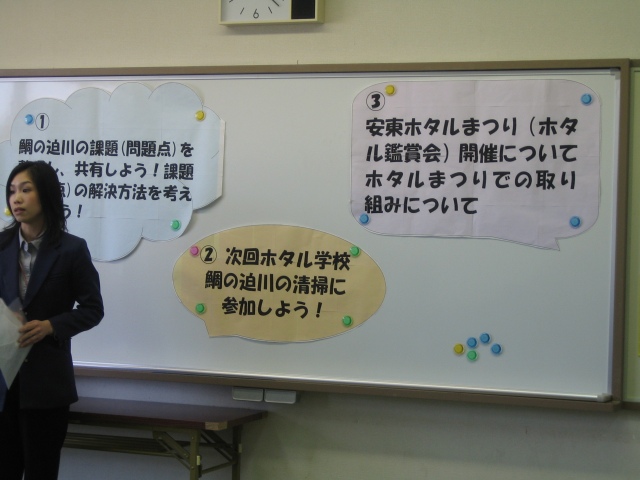 ①
鯛の迫川の課題(問題点)を
、共有しよう！課題
点)の解決方法を考え
う！
② 次回ホタル学校
鯛の迫川の清掃に
参加しよう！
③
安東ホタルまつり（ホタ
ル鑑賞会）開催について
ホタルまつりでの取り
組みについて
6